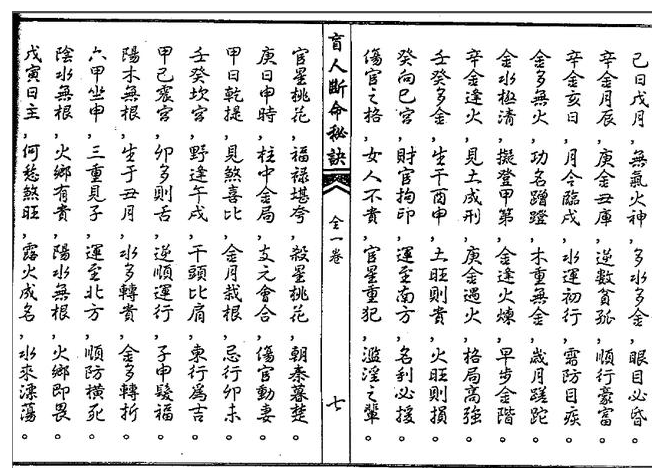 己日戊月，無氣火神，多水多金，眼目必昏。
辛金月辰，庚金丑庫，逆數貧孤，順行豪富。
辛金亥日，月令臨戌，水運初行，需防目疾。
金多無火，功名蹭蹬，木重無金，歲月蹉跎。
金水極清，擬登甲第，金逢火煉，早步金階。
辛金逢火，見土成刑，庚金遇火，格局高強。
壬癸多金，生于酉申，土旺則貴，火旺則損。
癸向巳宮，財官拘印，運至南方，名利必援。
傷官之格，女人不貴，官星重犯，濫淫之輩。
盲人斷命秘訣
全一卷
七
官星桃花，福祿堪夸，殺星桃花，朝秦暮楚。
庚日申時，柱中金局，支元會合，傷官動妻。
甲日乾提，見煞喜比，金月栽根，忌行卯未。
壬癸坎宮，野逢午戌，干頭比肩，東行為吉。
甲己震宮，卯多則吉，逆順運行，子申發福。
陽木無根，生于丑月，水多轉貴，金多轉折。
六甲坐申，三重見子，運至北方，順防橫死。
陰水無根，火鄉有貴，陽水無根，火鄉即畏。
戊寅日主，何愁煞旺，露火成名，水來漂蕩。